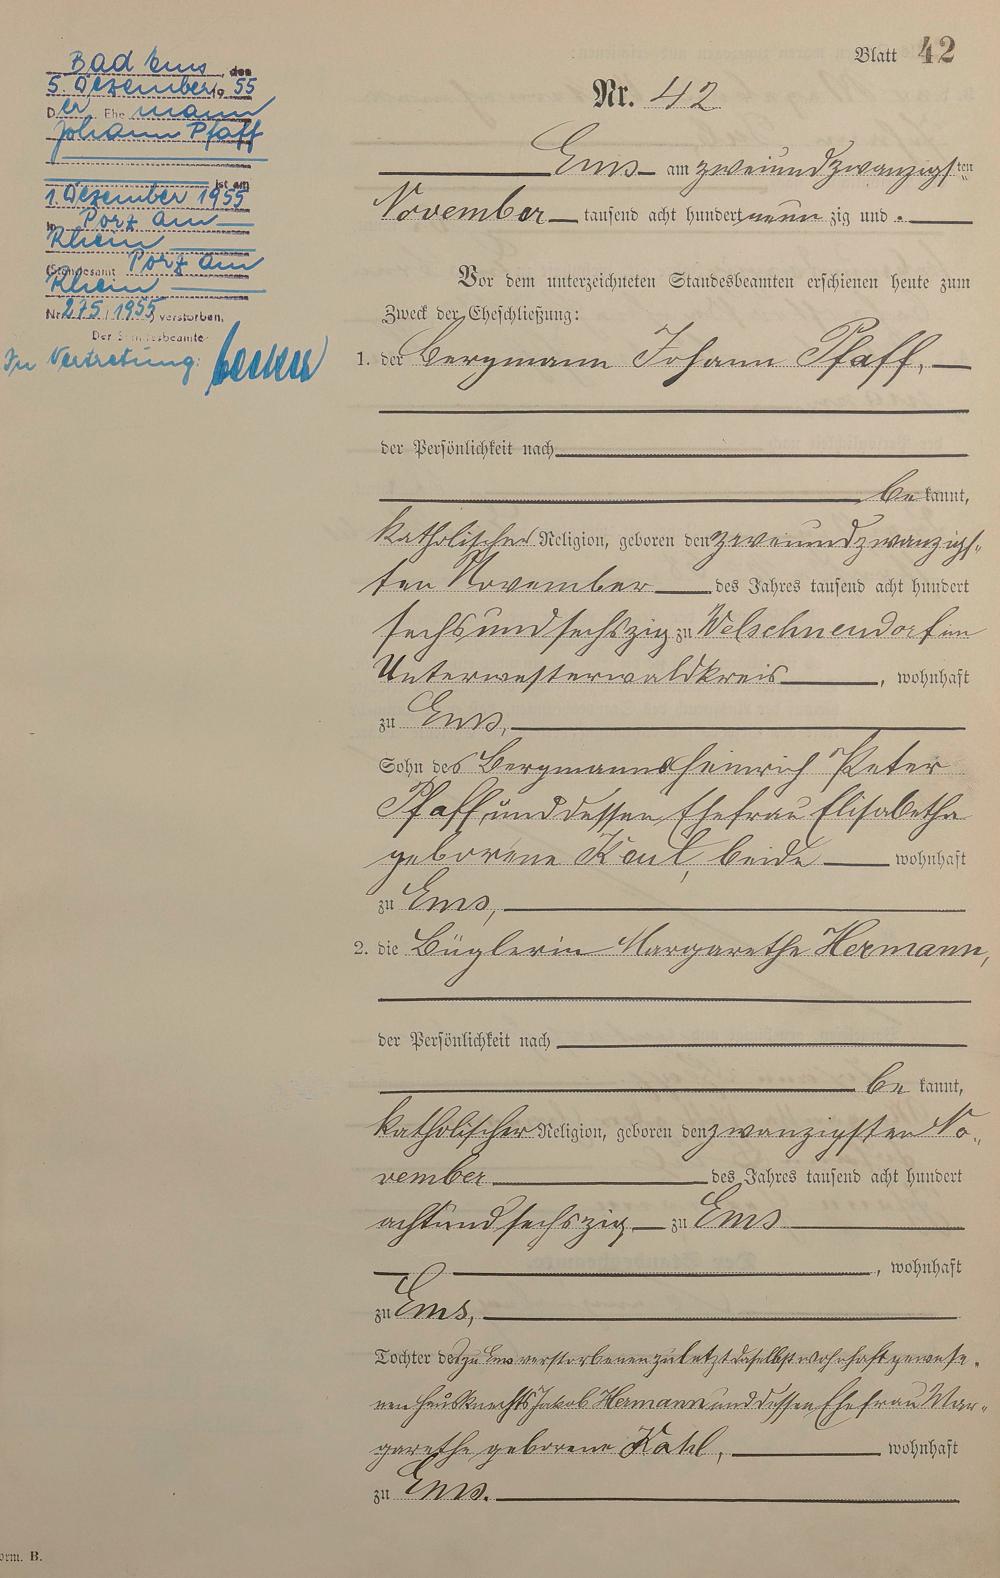 Bad Ems, den
5. Dezember 1955
Der Ehemann
Johann Pfaff
ist am
1. Dezember 1955
in Porz am
Rhein
(Standesamt Porz am
Rhein
Nr. 275/1955) verstorben.
Der Standesbeamte
In Vertretung:
Blatt 42
Nr. 42
Ems am zweiundzwanzigsten
November tausend acht hundert neun zig und .
Vor dem unterzeichneten Standesbeamten erschienen heute zum
Zweck der Eheschließung:
1. der Bergmann Johann Pfaff,
der Persönlichkeit nach
be kannt,
katholischer Religion, geboren den zweiundzwanzigs-
ten November des Jahres tausend acht hundert
sechsundsechszig zu Welschneudorf im
Unterwesterwaldkreis, wohnhaft
zu Ems,
Sohn des Bergmanns Heinrich Peter
Pfaff und dessen Ehefrau Elisabetha
geborene Keul, beide wohnhaft
zu Ems,
2. die Büglerin Margarethe Hermann,
der Persönlichkeit nach
be kannt,
katholischer Religion, geboren den zwanzigsten No-
vember des Jahres tausend acht hundert
achtundsechszig zu Ems
, wohnhaft
zu Ems,
Tochter des zu Ems verstorbenen zuletzt daselbst wohnhaft gewese-
nen Hausknechts Jakob Hermann und dessen Ehefrau Mar-
garethe geborene Kahl, wohnhaft
zu Ems.
orm. B.